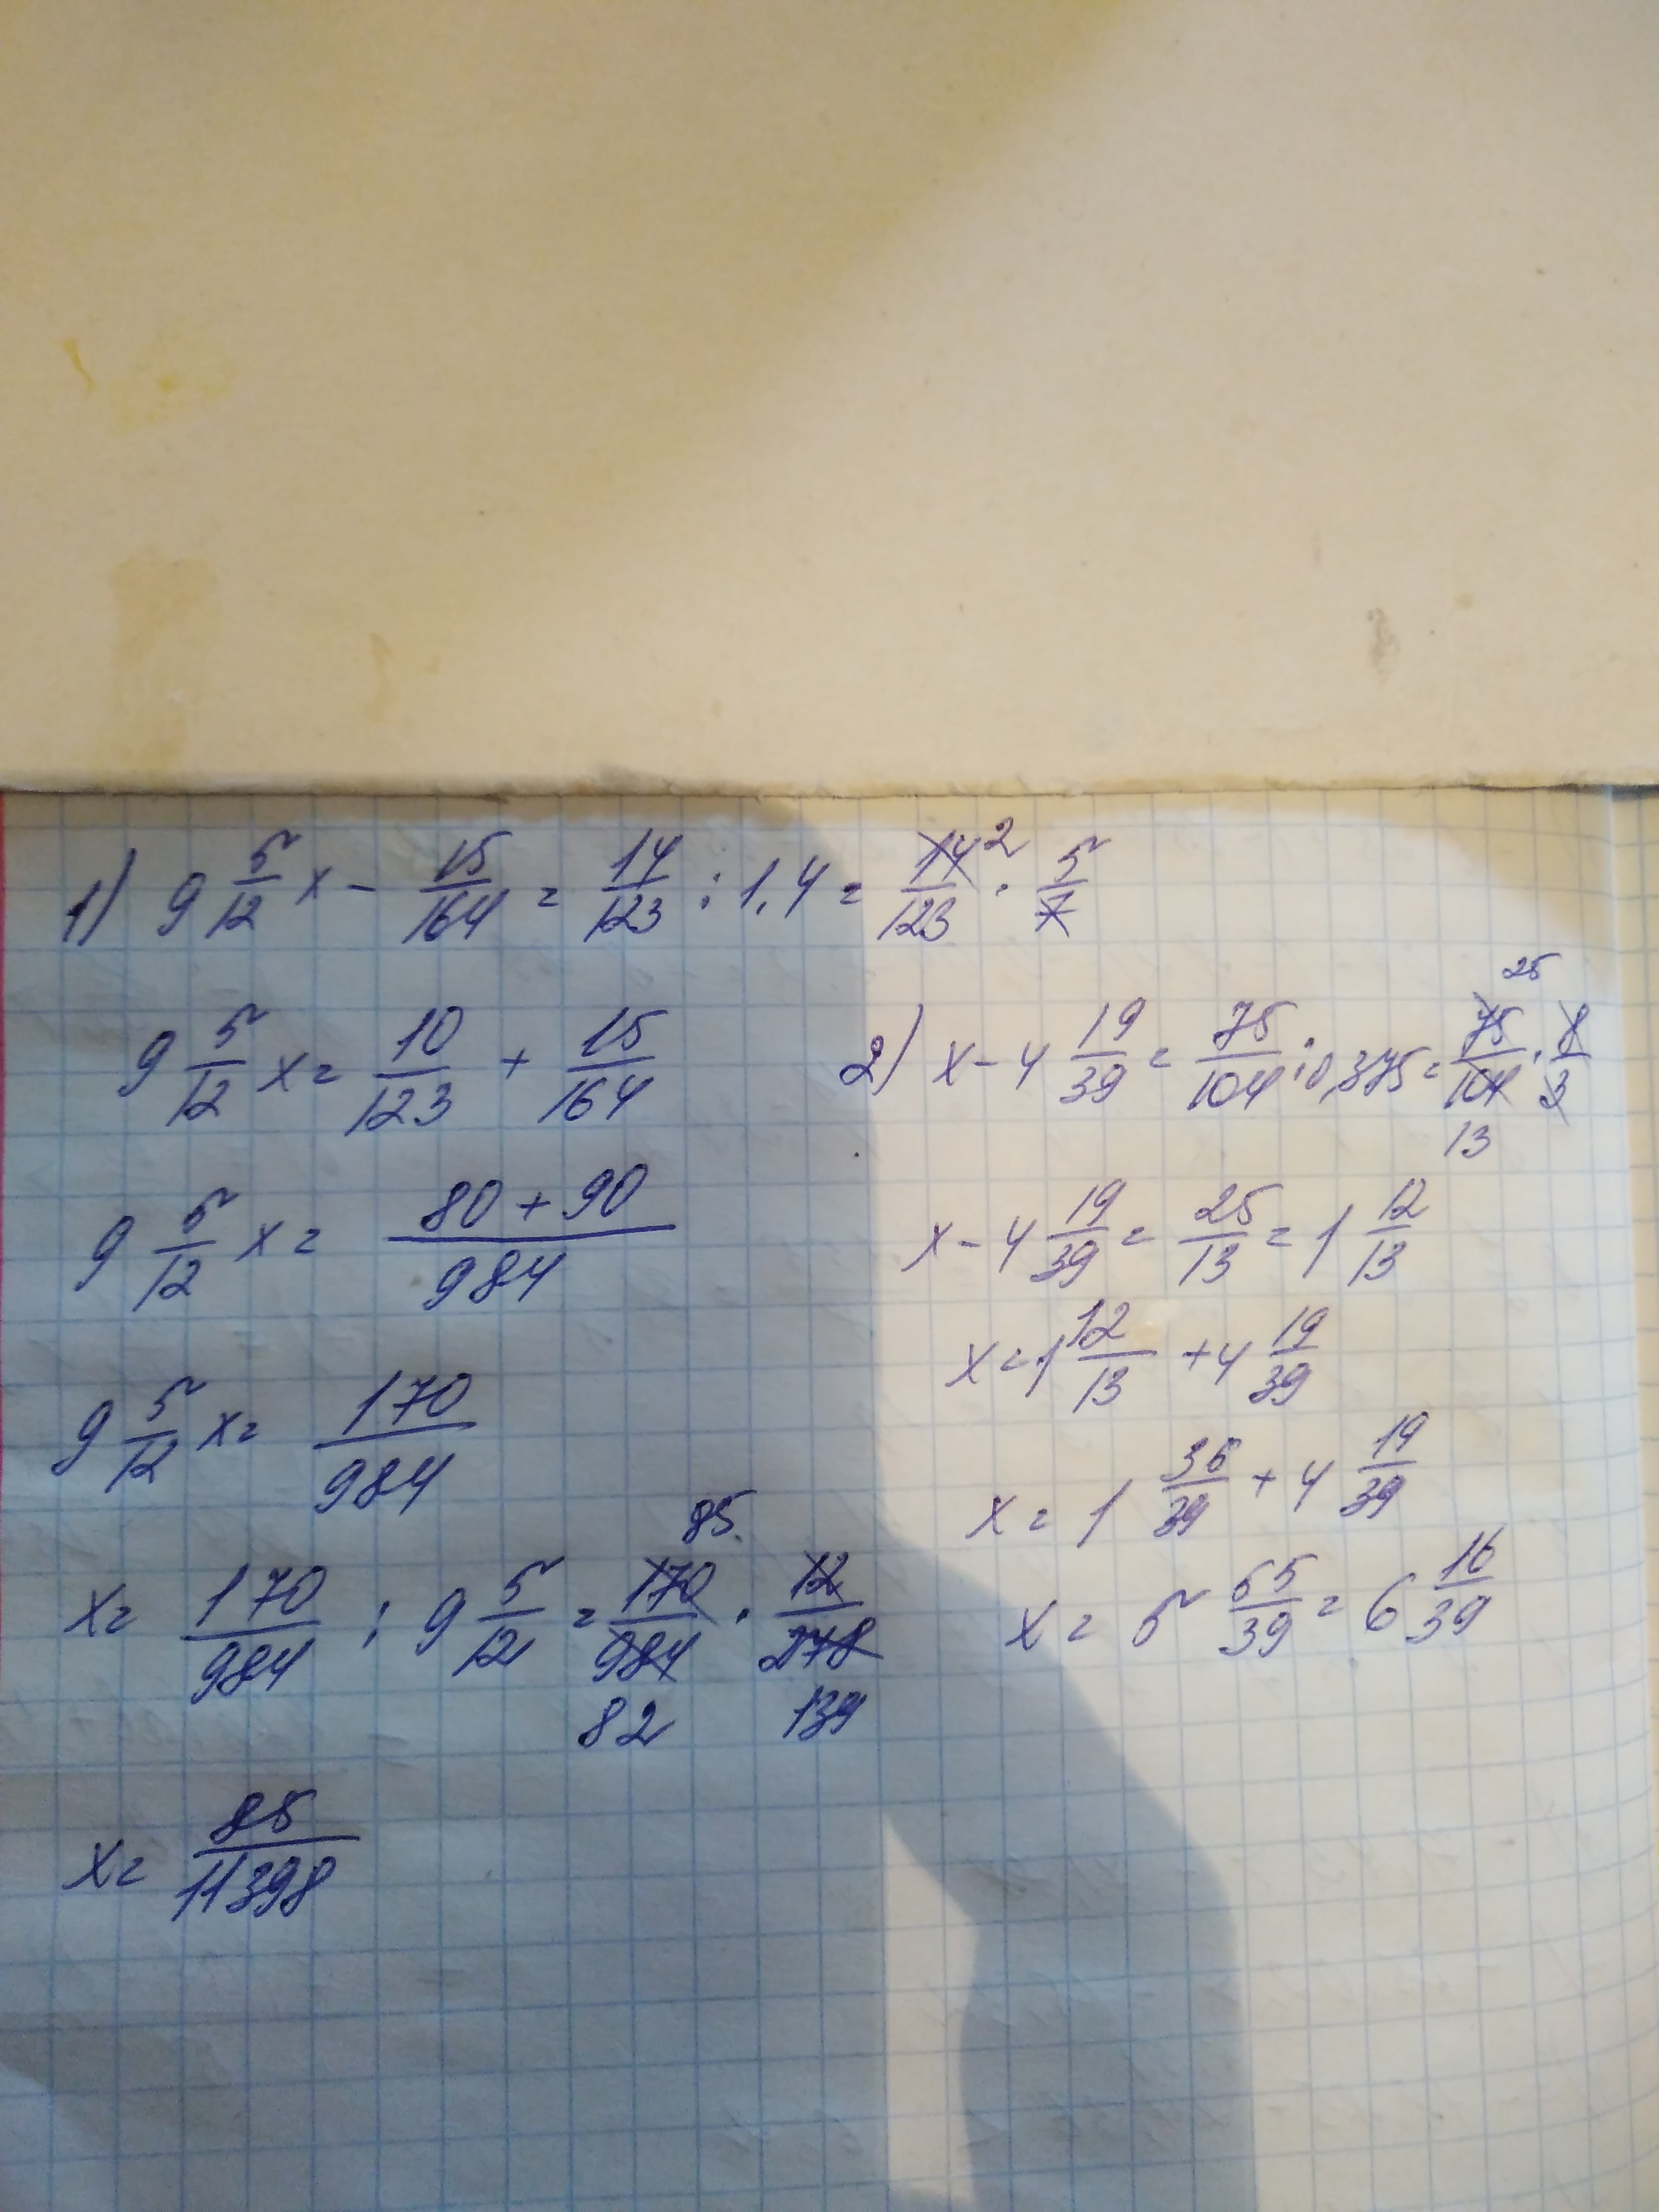 1) 9 5/12 x - 15/164 = 14/123 : 1,4 = 14/123 2 · 5/7
9 5/12 x = 10/123 + 15/164
9 5/12 x = (80 + 90)/984
9 5/12 x = 170/984
x = 170/984 : 9 5/12 = 170/984 85 82 · 12/278 139
x = 85/11398
2) x - 4 19/39 = 75/104 : 0,375 = 75/104 25 13 · 8/3
x - 4 19/39 = 25/13 = 1 12/13
x = 1 12/13 + 4 19/39
x = 1 36/39 + 4 19/39
x = 5 55/39 = 6 16/39